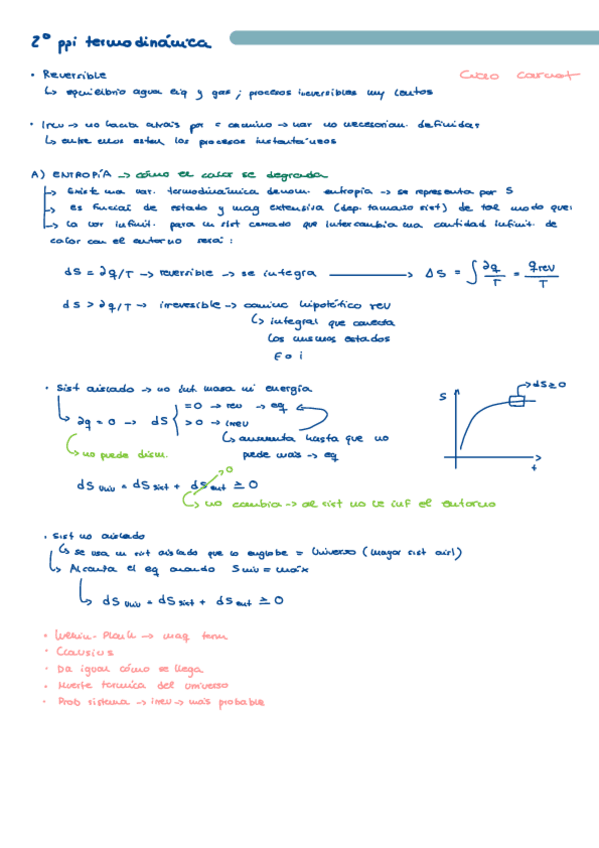 2º ppi termodinámica
• Reversible
Ciclo Carnot
↳ equilibrio agua liq y gas ; procesos irreversibles muy lentos
• Irrev → no hacia atrás por = camino → var no necesariam. definidas
↳ entre ellos están los procesos instantáneos
A) ENTROPÍA → cómo el calor se degrada
↳ Existe una var. termodinámica denom. entropía → se representa por S
↳ es función de estado y mag extensiva (dep. tamaño sist) de tal modo que:
↳ La var infinit. para un sist cerrado que intercambia una cantidad infinit. de
calor con el entorno será :
dS = ∂q/T → reversible → se integra → ΔS = ∫ ∂q/T = qrev/T
dS > ∂q/T → irreversible → camino hipotético rev
↳ integral que conecta
los mismos estados
F o i
• Sist aislado → no inf. masa ni energía
↳ ∂q = 0 → dS { = 0 → rev → eq
> 0 → irrev
↳ no puede dism.
↳ aumenta hasta que no
puede más → eq
S
→ dS ≥ 0
t
dS univ = dS sist + dS ent ≥ 0
→ 0
↳ no cambia → al sist no le inf el entorno
• Sist no aislado
↳ se usa un sist aislado que lo englobe = Universo (mayor sist aisl)
↳ Alcanza el eq cuando S univ = máx
↳ dS univ = dS sist + dS ent ≥ 0
• Kelvin - Planck → maq term
• Clausius
• Da igual cómo se llega
• Muerte térmica del universo
• Prob sistema → irrev → más probable